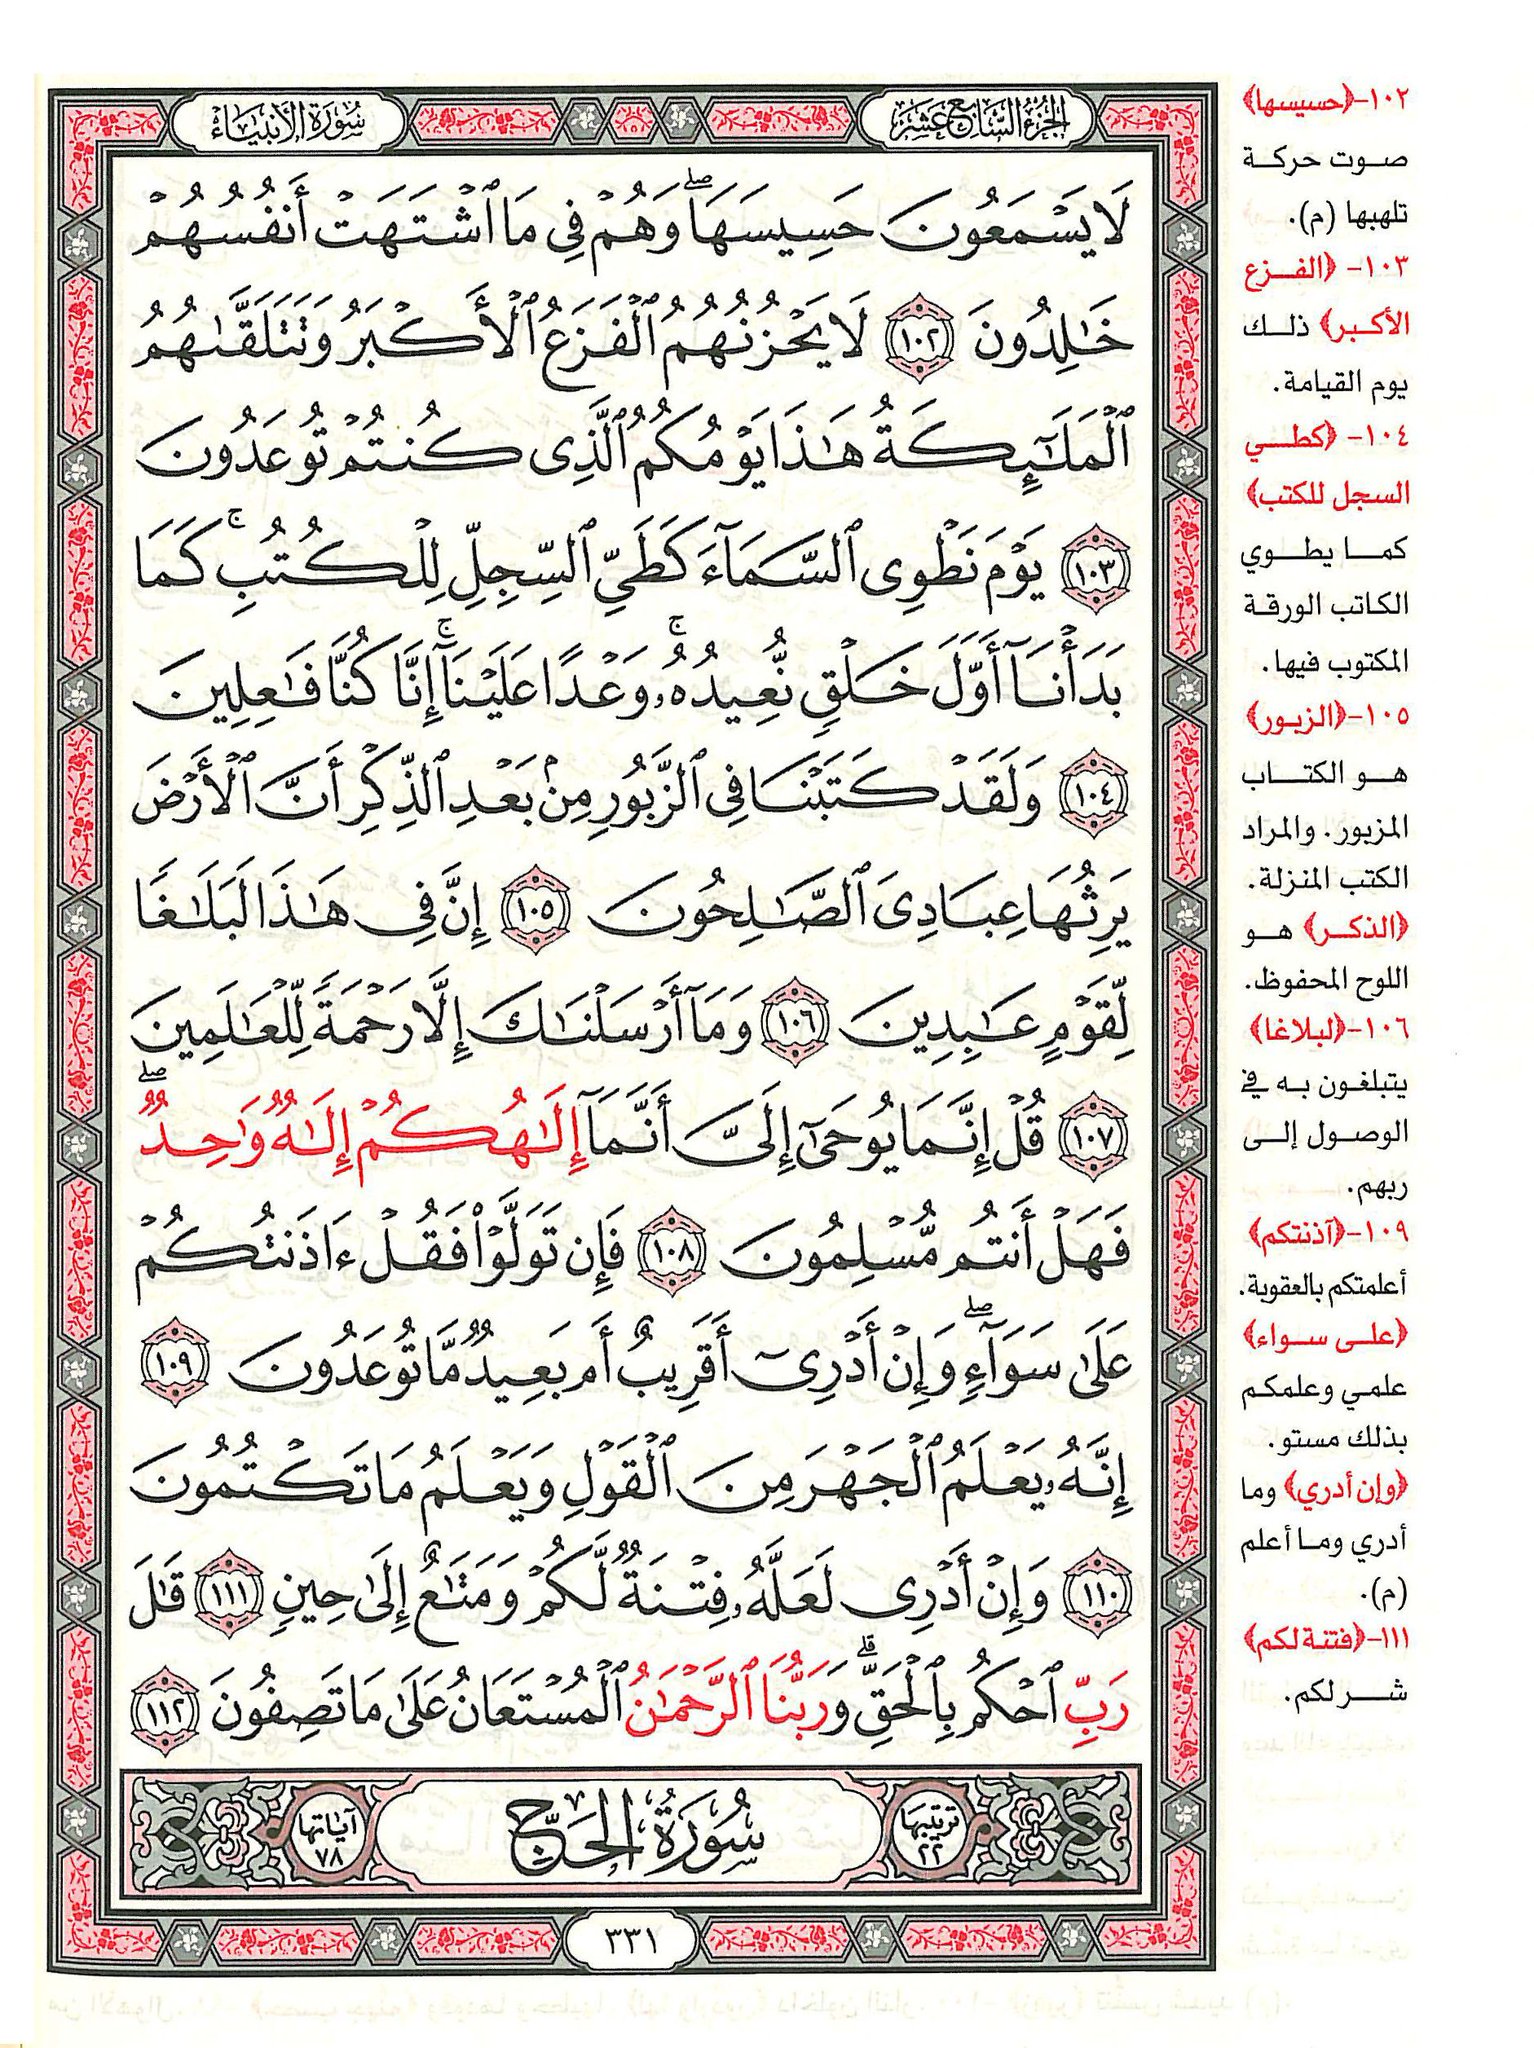 الجزء السابع عشر
سورة الأنبياء
لَا يَسْمَعُونَ حَسِيسَهَا ۖ وَهُمْ فِى مَا ٱشْتَهَتْ أَنفُسُهُمْ
خَٰلِدُونَ ١٠٢ لَا يَحْزُنُهُمُ ٱلْفَزَعُ ٱلْأَكْبَرُ وَتَتَلَقَّىٰهُمُ
ٱلْمَلَٰٓئِكَةُ هَٰذَا يَوْمُكُمُ ٱلَّذِى كُنتُمْ تُوعَدُونَ
١٠٣ يَوْمَ نَطْوِى ٱلسَّمَآءَ كَطَىِّ ٱلسِّجِلِّ لِلْكُتُبِ ۚ كَمَا
بَدَأْنَآ أَوَّلَ خَلْقٍ نُّعِيدُهُۥ ۚ وَعْدًا عَلَيْنَآ ۚ إِنَّا كُنَّا فَٰعِلِينَ
١٠٤ وَلَقَدْ كَتَبْنَا فِى ٱلزَّبُورِ مِنۢ بَعْدِ ٱلذِّكْرِ أَنَّ ٱلْأَرْضَ
يَرِثُهَا عِبَادِىَ ٱلصَّٰلِحُونَ ١٠٥ إِنَّ فِى هَٰذَا لَبَلَٰغًا
لِّقَوْمٍ عَٰبِدِينَ ١٠٦ وَمَآ أَرْسَلْنَٰكَ إِلَّا رَحْمَةً لِّلْعَٰلَمِينَ
١٠٧ قُلْ إِنَّمَا يُوحَىٰٓ إِلَىَّ أَنَّمَآ إِلَٰهُكُمْ إِلَٰهٌ وَٰحِدٌ ۖ
فَهَلْ أَنتُم مُّسْلِمُونَ ١٠٨ فَإِن تَوَلَّوْا۟ فَقُلْ ءَاذَنتُكُمْ
عَلَىٰ سَوَآءٍ ۖ وَإِنْ أَدْرِىٓ أَقَرِيبٌ أَم بَعِيدٌ مَّا تُوعَدُونَ ١٠٩
إِنَّهُۥ يَعْلَمُ ٱلْجَهْرَ مِنَ ٱلْقَوْلِ وَيَعْلَمُ مَا تَكْتُمُونَ
١١٠ وَإِنْ أَدْرِى لَعَلَّهُۥ فِتْنَةٌ لَّكُمْ وَمَتَٰعٌ إِلَىٰ حِينٍ ١١١ قَٰلَ
رَبِّ ٱحْكُم بِٱلْحَقِّ ۗ وَرَبُّنَا ٱلرَّحْمَٰنُ ٱلْمُسْتَعَانُ عَلَىٰ مَا تَصِفُونَ ١١٢
ترتيبها ٢٢
سُورَةُ الحَجّ
آياتها ٧٨
٣٣١
١٠٢-﴿حسيسها﴾
صوت حركة
تلهبها (م).
١٠٣- ﴿الفزع
الأكبر﴾ ذلك
يوم القيامة.
١٠٤- ﴿كطي
السجل للكتب﴾
كما يطوي
الكاتب الورقة
المكتوب فيها.
١٠٥-﴿الزبور﴾
هو الكتاب
المزبور. والمراد
الكتب المنزلة.
﴿الذكر﴾ هو
اللوح المحفوظ.
١٠٦-﴿لبلاغا﴾
يتبلغون به في
الوصول إلى
ربهم.
١٠٩-﴿آذنتكم﴾
أعلمتكم بالعقوبة.
﴿على سواء﴾
علمي وعلمكم
بذلك مستو.
﴿وإن أدري﴾ وما
أدري وما أعلم
(م).
١١١-﴿فتنة لكم﴾
شر لكم.